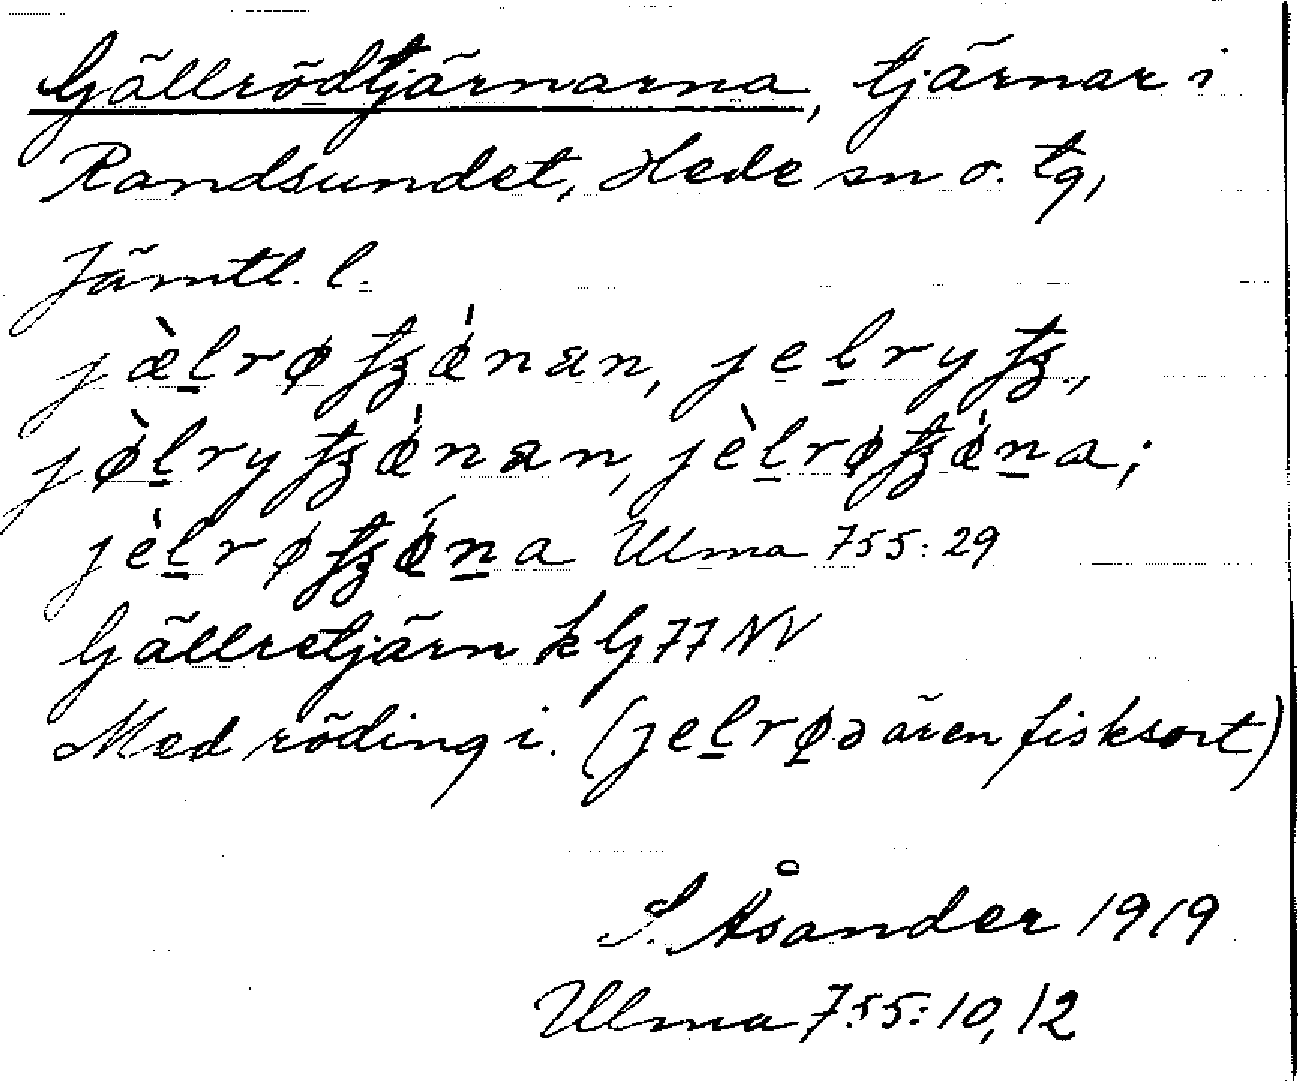 Gällrödtjärnarna, tjärnar i
Randsundet, Hede sn o. tg,
Jämtl. l.
jæ̀l̠røtʒǿnan, jel̠rytʒ.,
jø̀l̠rytʒǿnan, jèl̠røtʒǿn̠a;
jèl̠røtʒǿ̠n̠a Ulma 755:29
Gällretjärn k G77NV
Med röding i. (jel̠rø̠ə är en fisksort)
S. Åsander 1919
Ulma 755:10, 12